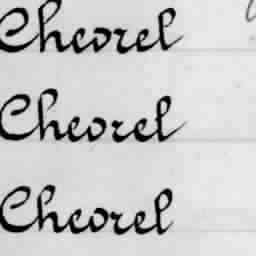 Cheorel
Cheorel
Cheorel